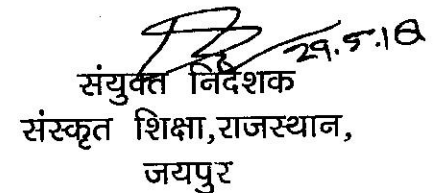 29.5.18
संयुक्त निदेशक
संस्कृत शिक्षा,राजस्थान,
जयपुर